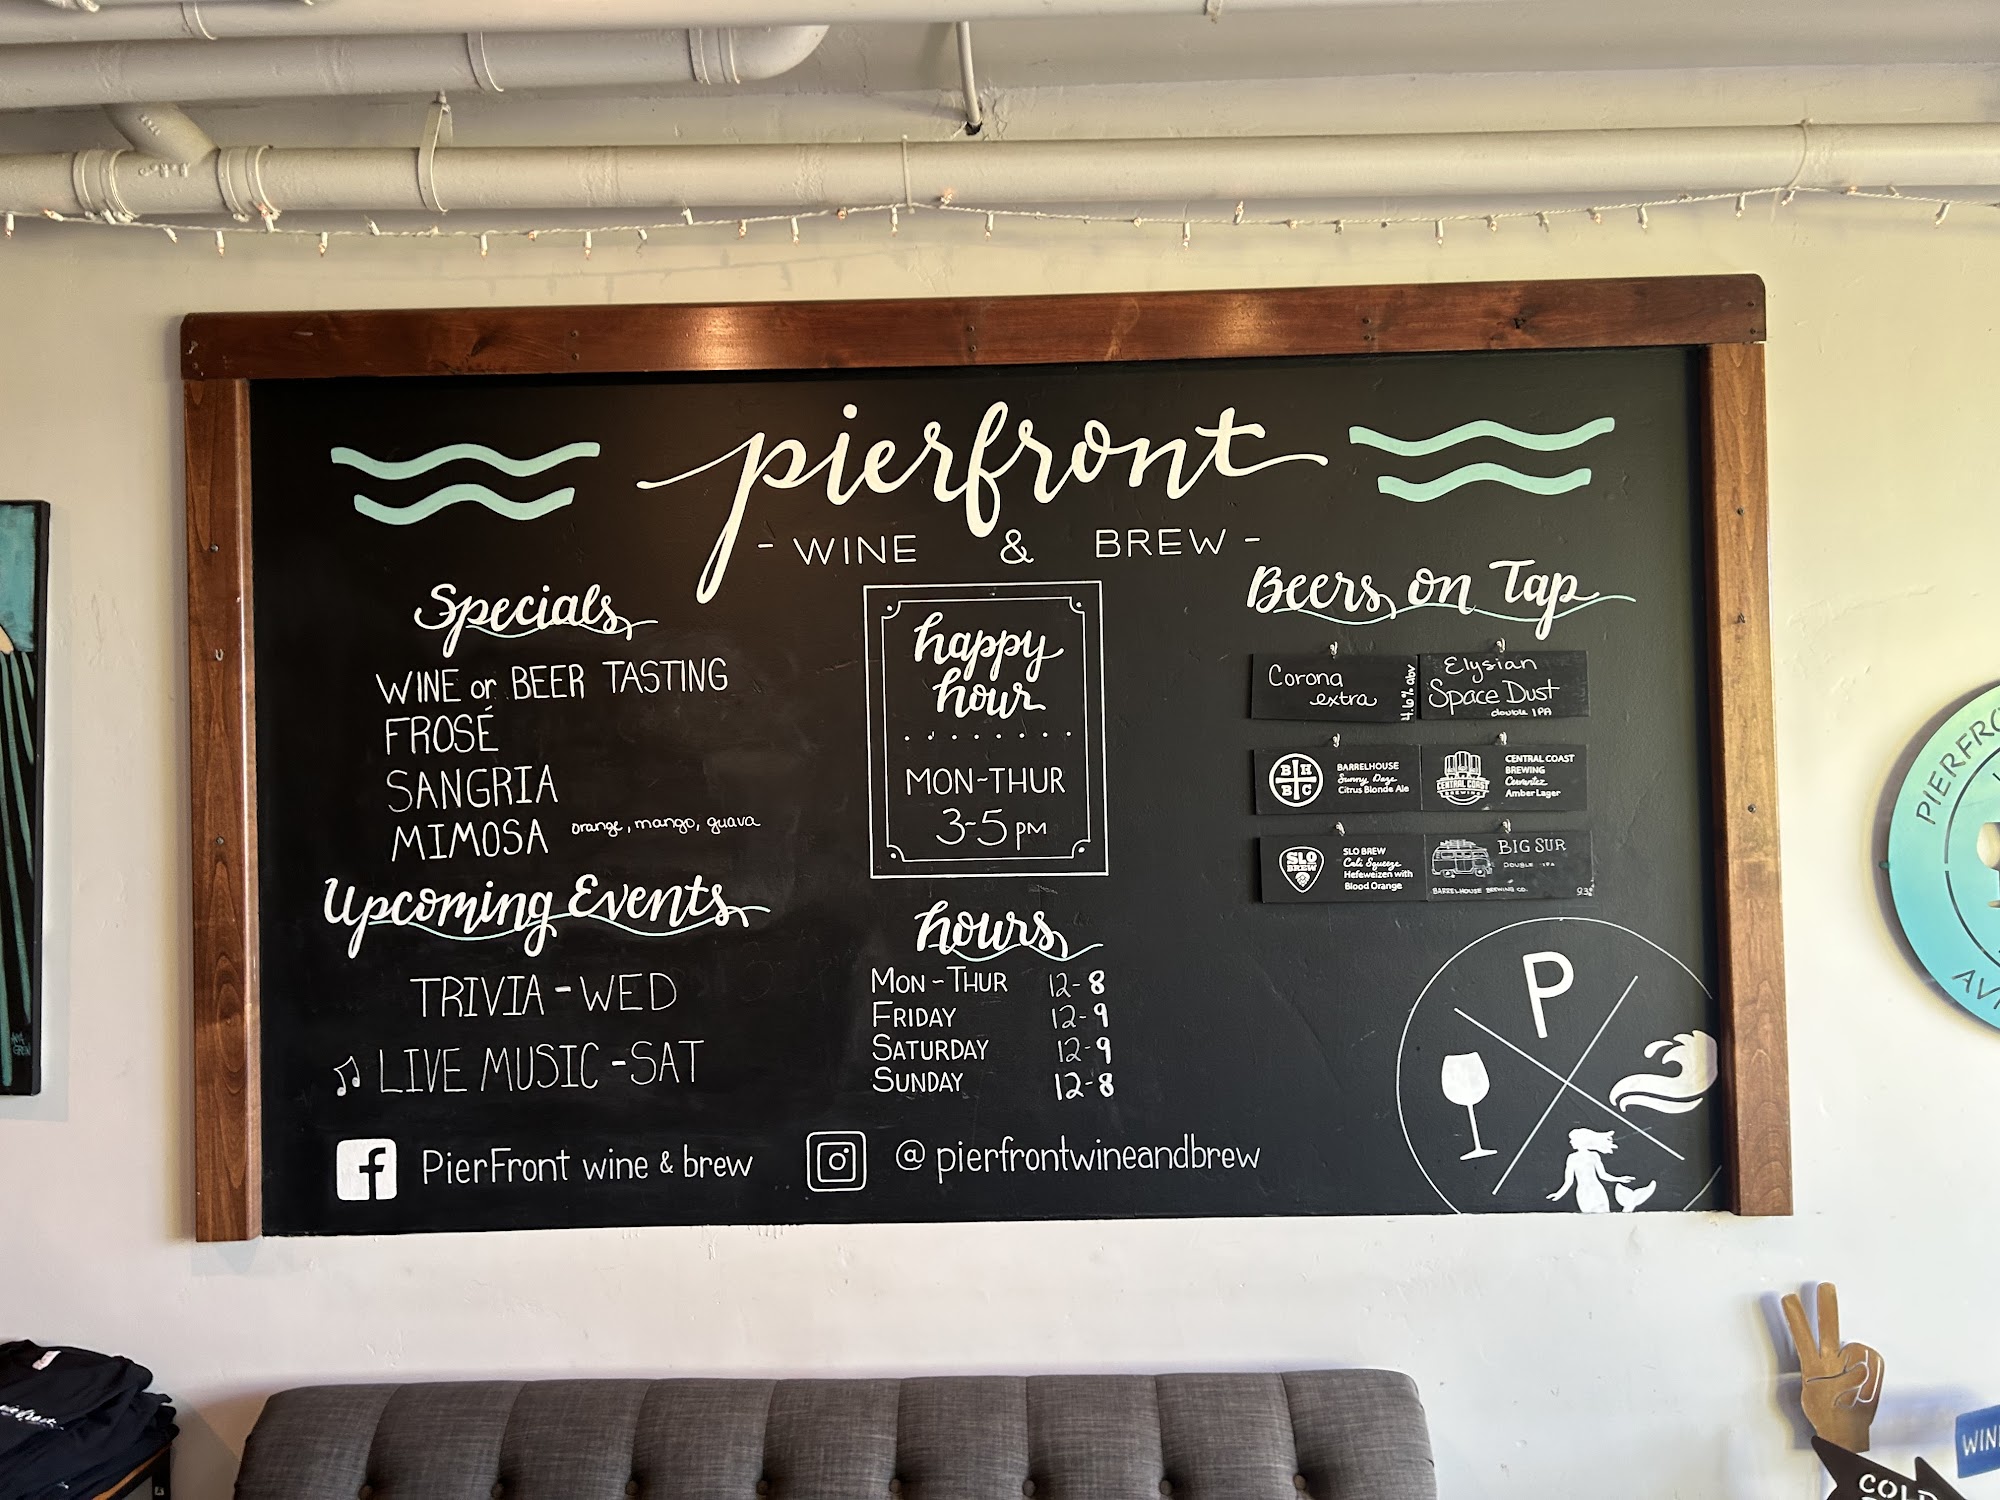 pierfront
- WINE & BREW -
Specials
WINE or BEER TASTING
FROSÉ
SANGRIA
MIMOSA orange, mango, guava
Upcoming Events
TRIVIA - WED
LIVE MUSIC - SAT
happy
hour
MON-THUR
3-5 PM
hours
MON - THUR 12-8
FRIDAY 12-9
SATURDAY 12-9
SUNDAY 12-8
Beers on Tap
Corona
extra
4.6% abv
Elysian
Space Dust
double IPA
BH
BC
BARRELHOUSE
Sunny Daze
Citrus Blonde Ale
CENTRAL COAST
BREWING
CENTRAL COAST
BREWING
Cervertez
Amber Lager
SLO
BREW
SLO BREW
Cali Squeeze
Hefeweizen with
Blood Orange
BIG SUR
DOUBLE IPA
BARRELHOUSE BREWING CO.
P
f PierFront wine & brew
@pierfrontwineandbrew
PIERFRO
AVI
WIN
COLD